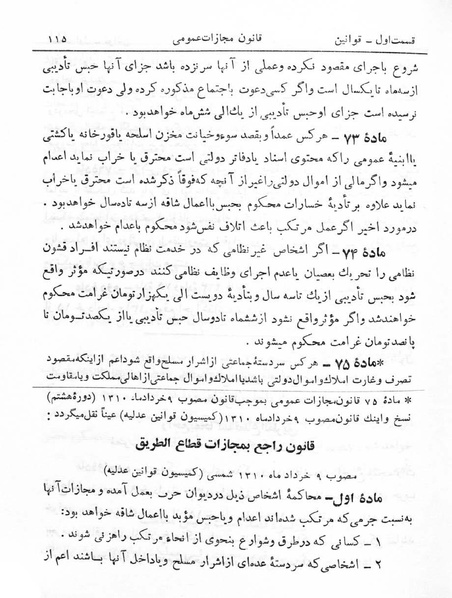 قسمت اول ــ قوانین قانون مجازات عمومی ۱۱۵
شروع باجرای مقصود نکرده وعملی از آنها سرنزده باشد جزای آنها حبس تأدیبی
ازسه‌ماه تایکسال است واگر کسی دعوت باجتماع مذکوره کرده ولی دعوت اوباجابت
نرسیده است جزای اوحبس تأدیبی از یك‌الی شش‌ماه خواهدبود .
مادۀ ۷۳ ــ هرکس عمداً وبقصد سوء وخیانت مخزن اسلحه یاقورخانه یاکشتی
یاابنیۀ عمومی راکه محتوی اسناد یادفاتر دولتی است محترق یا خراب نماید اعدام
میشود واگرمالی از اموال دولتی راغیراز آنچه که‌فوقاً ذکرشده است محترق یاخراب
نماید علاوه بر تأدیۀ خسارات محکوم بحبس‌بااعمال شاقه ازسه تاده‌سال خواهدبود .
درمورد اخیر اگرعمل مرتکب باعث اتلاف نفس‌شود محکوم باعدام خواهدشد .
مادۀ ۷۴ ــ اگر اشخاص غیرنظامی که در خدمت نظام نیستند افراد قشون
نظامی را تحریك بعصیان یاعدم اجرای وظایف نظامی کنند درصورتیکه مؤثر واقع
شود بحبس تأدیبی ازیك تاسه سال وبتأدیۀ دویست الی یکهزارتومان غرامت محکوم
خواهندشد واگر مؤثرواقع نشود ازششماه تادوسال حبس تأدیبی یااز یکصدتومان تا
پانصدتومان غرامت محکوم میشوند .
*مادۀ ۷۵ ــ هرکس سردستۀ جماعتی ازاشرار مسلح واقع شوداعم ازاینکه‌مقصود
تصرف وغارت املاك واموال دولتی باشدیااملاك‌واموال جماعتی ازاهالی‌مملکت ویامقاومت
* مادۀ ۷۵ قانون‌مجازات عمومی بموجب‌قانون مصوب ۹ خردادماه ۱۳۱۰ (دورۀ هشتم)
نسخ واینك قانون‌مصوب ۹ خردادماه ۱۳۱۰ (کمیسیون قوانین عدلیه) عیناً نقل‌میگردد :
قانون راجع بمجازات قطاع الطریق
مصوب ۹ خرداد ماه ۱۳۱۰ شمسی (کمیسیون قوانین عدلیه)
مادۀ اول ــ محاکمۀ اشخاص ذیل دردیوان حرب بعمل آمده و مجازات‌آنها
به‌نسبت جرمی‌که مرتکب شده‌اند اعدام ویاحبس مؤبد بااعمال شاقه خواهد بود:
۱ ــ کسانی که‌درطرق وشوارع بنحوی از انحاء مرتکب راهزنی شوند .
۲ ــ اشخاصی‌که سردستۀ عده‌ای ازاشرار مسلح ویاداخل آنها باشند اعم از